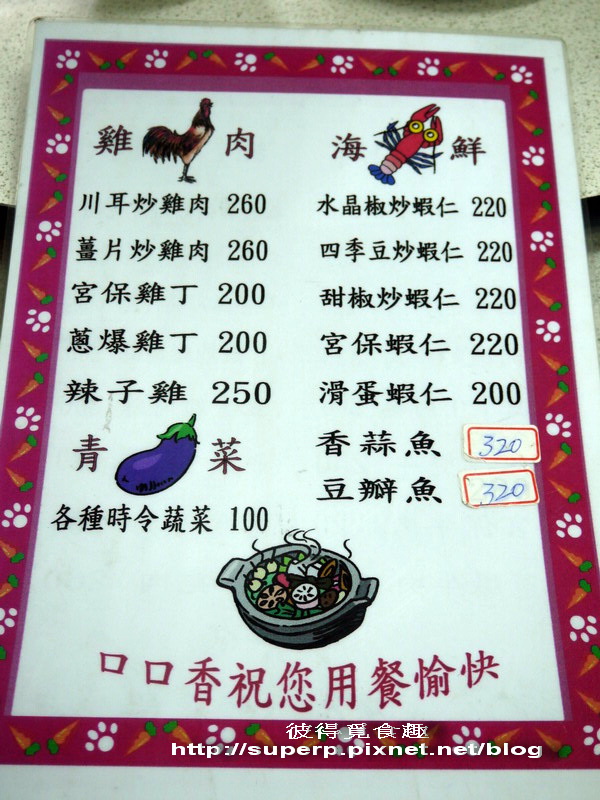 雞肉
川耳炒雞肉 260
薑片炒雞肉 260
宮保雞丁 200
蔥爆雞丁 200
辣子雞 250
青菜
各種時令蔬菜 100
海鮮
水晶椒炒蝦仁 220
四季豆炒蝦仁 220
甜椒炒蝦仁 220
宮保蝦仁 220
滑蛋蝦仁 200
香蒜魚 320
豆瓣魚 320
口口香祝您用餐愉快
彼得覓食趣
http://superp.pixnet.net/blog